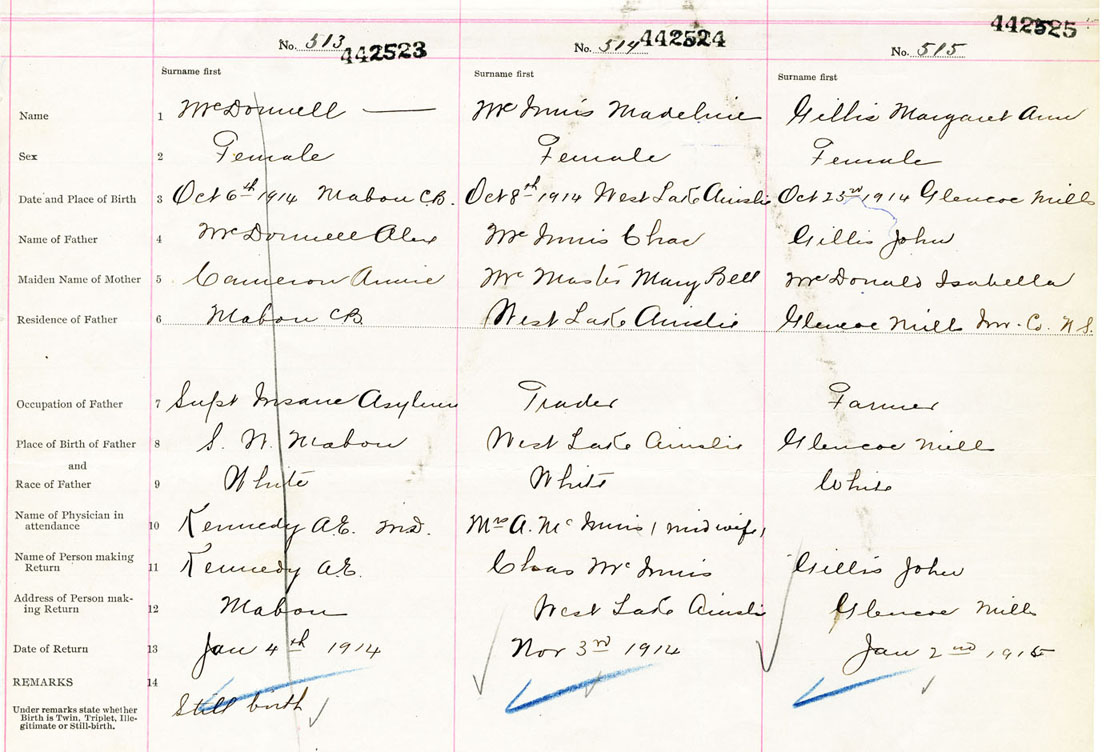 No. 513 442523 No. 514 442524 No. 515 442525
Surname first Surname first Surname first
Name 1 McDonnell — Mc Innis Madeline Gillis Margaret Ann
Sex 2 Female Female Female
Date and Place of Birth 3 Oct 6th 1914 Mabou C.B. Oct 8th 1914 West Lake Ainslie Oct 23rd 1914 Glencoe Mills
Name of Father 4 McDonnell Alex Mc Innis Chas Gillis John
Maiden Name of Mother 5 Cameron Annie Mc Master Mary Bell McDonald Isabella
Residence of Father 6 Mabou CB. West Lake Ainslie Glencoe Mills Inv. Co. N.S.
Occupation of Father 7 Supt Insane Asylum Trader Farmer
Place of Birth of Father 8 S. W. Mabou West Lake Ainslie Glencoe Mill
and
Race of Father 9 White White White
Name of Physician in
attendance 10 Kennedy A.E. M.D. Mrs A. McInnis (midwife)
Name of Person making
Return 11 Kennedy A.E. Chas McInnis Gillis John
Address of Person mak-
ing Return 12 Mabou West Lake Ainslie Glencoe Mills
Date of Return 13 Jan 4th 1914 Nov 3rd 1914 Jan 2nd 1915
REMARKS 14
Under remarks state whether
Birth is Twin, Triplet, Ille-
gitimate or Still-birth.
Still birth